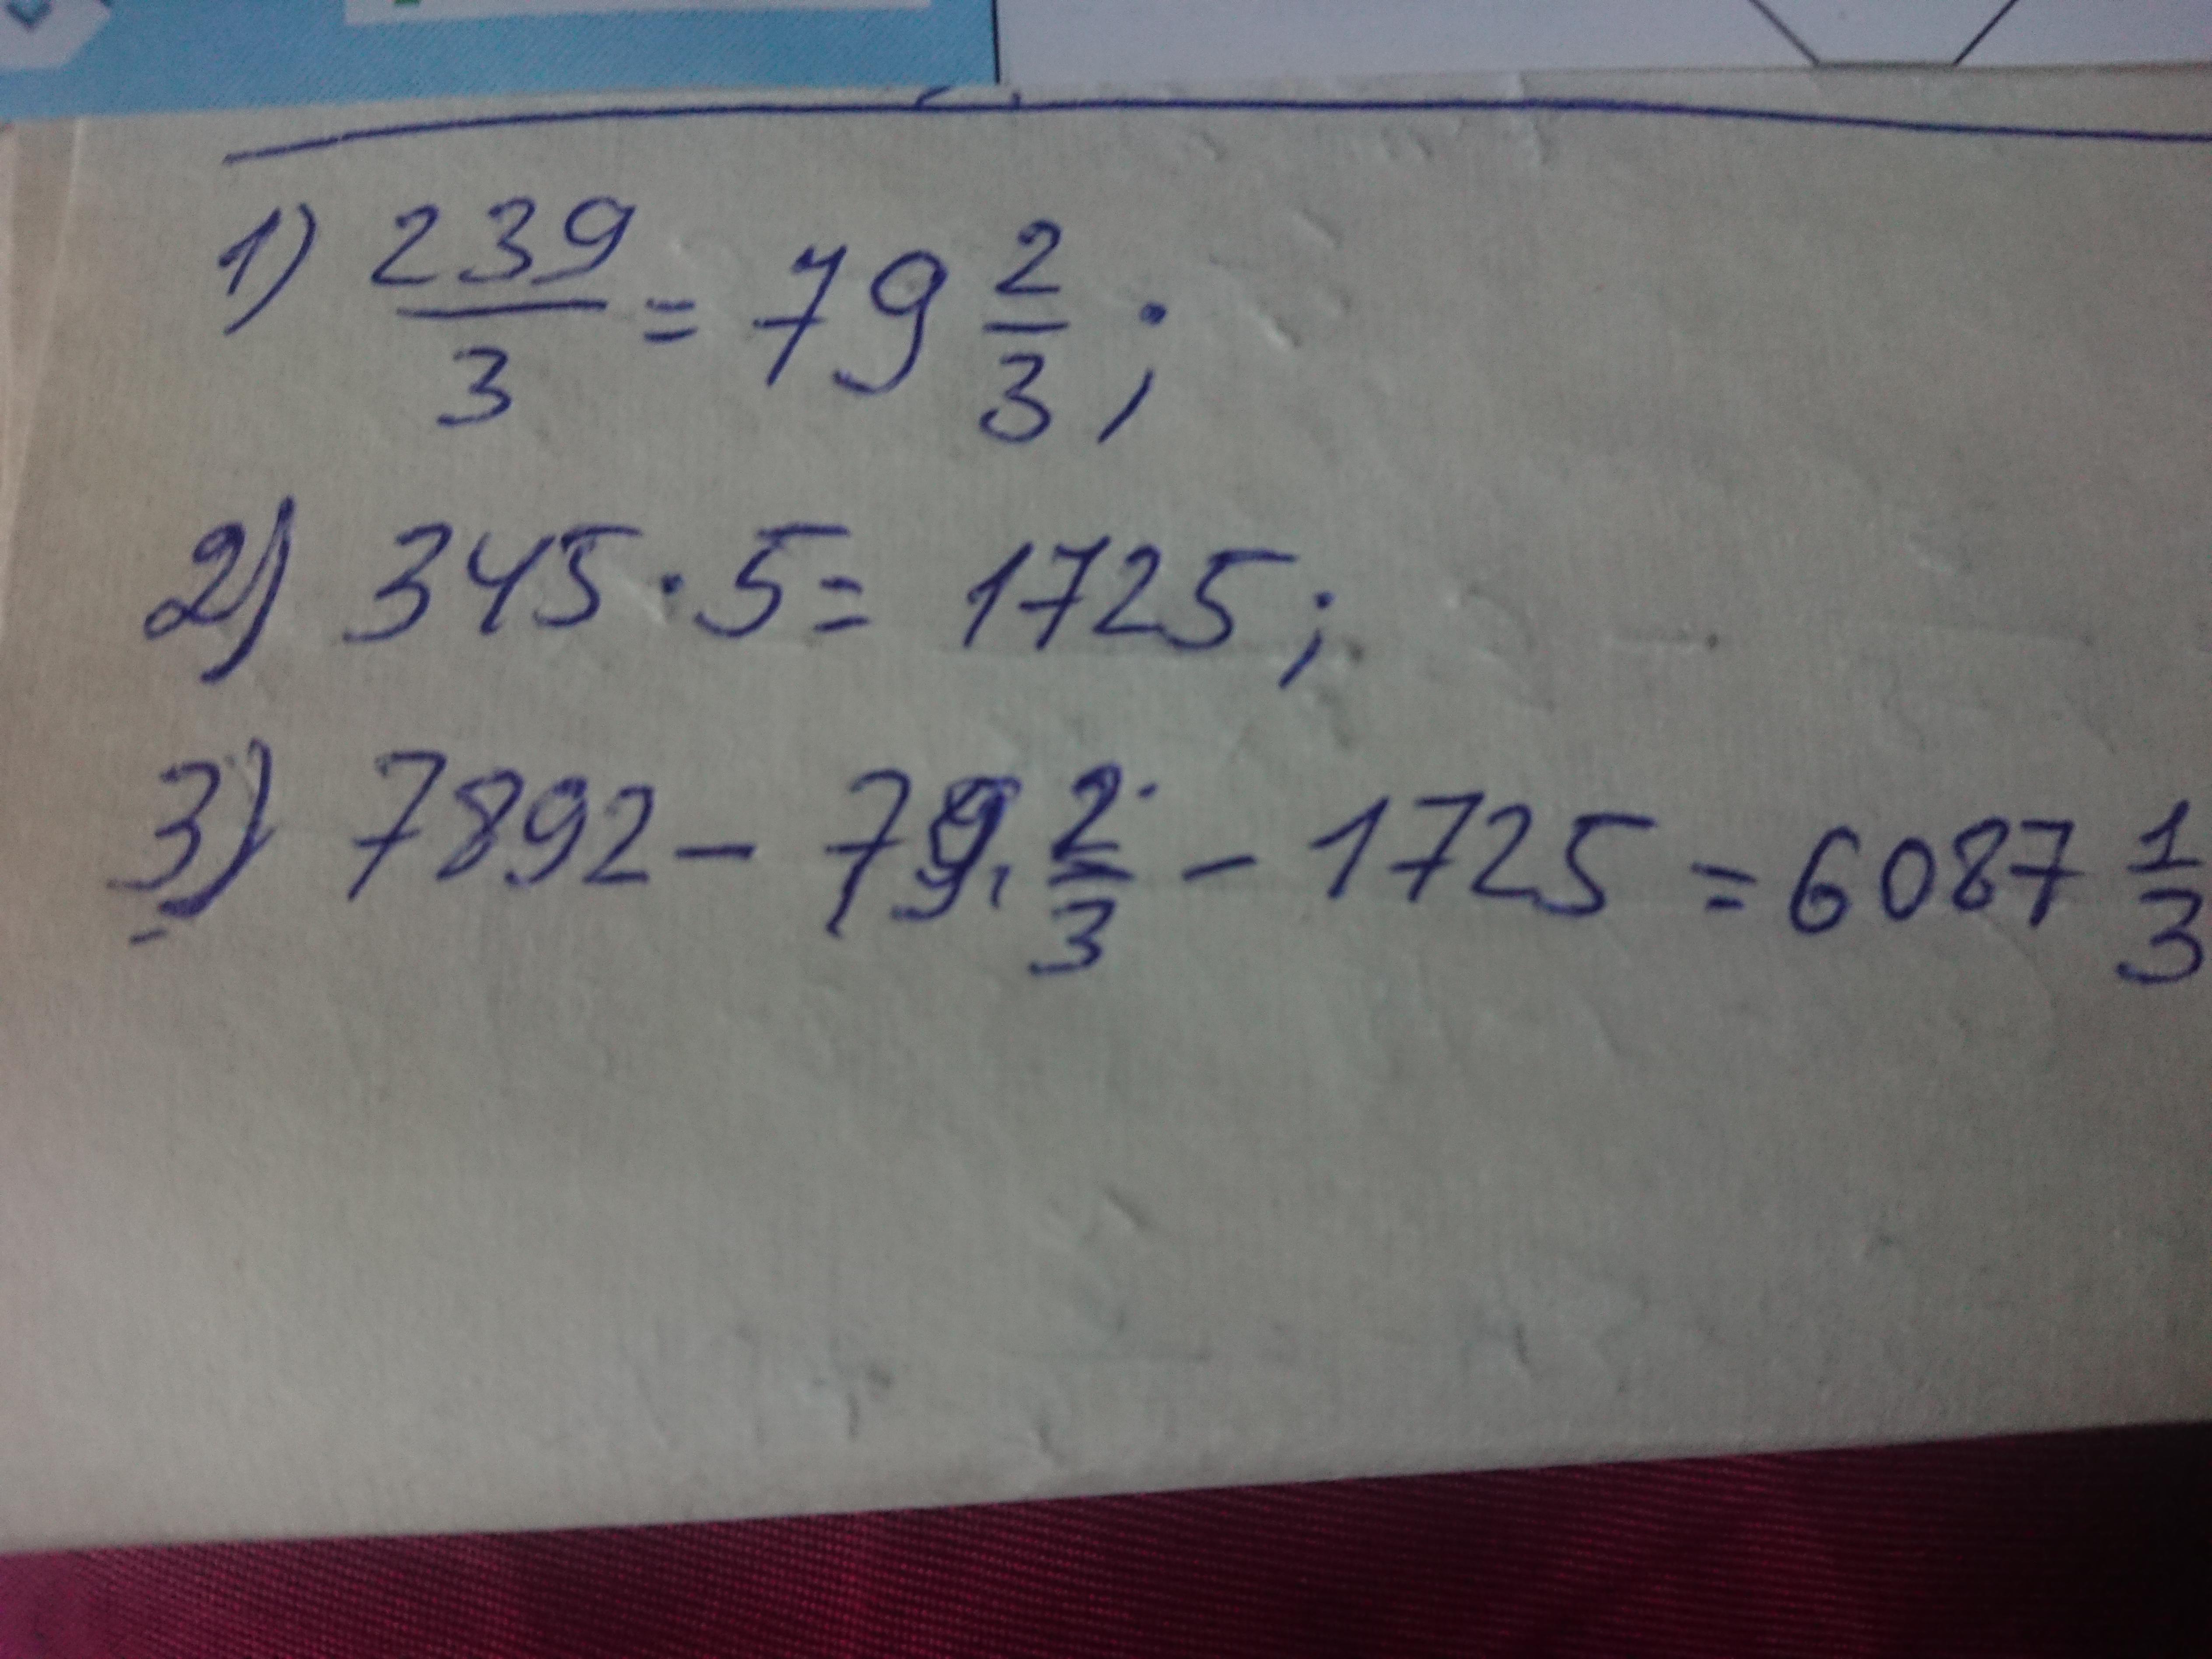 1) 239/3 = 79 2/3;
2) 345·5= 1725;
3) 7892 - 79 2/3 - 1725 = 6087 1/3